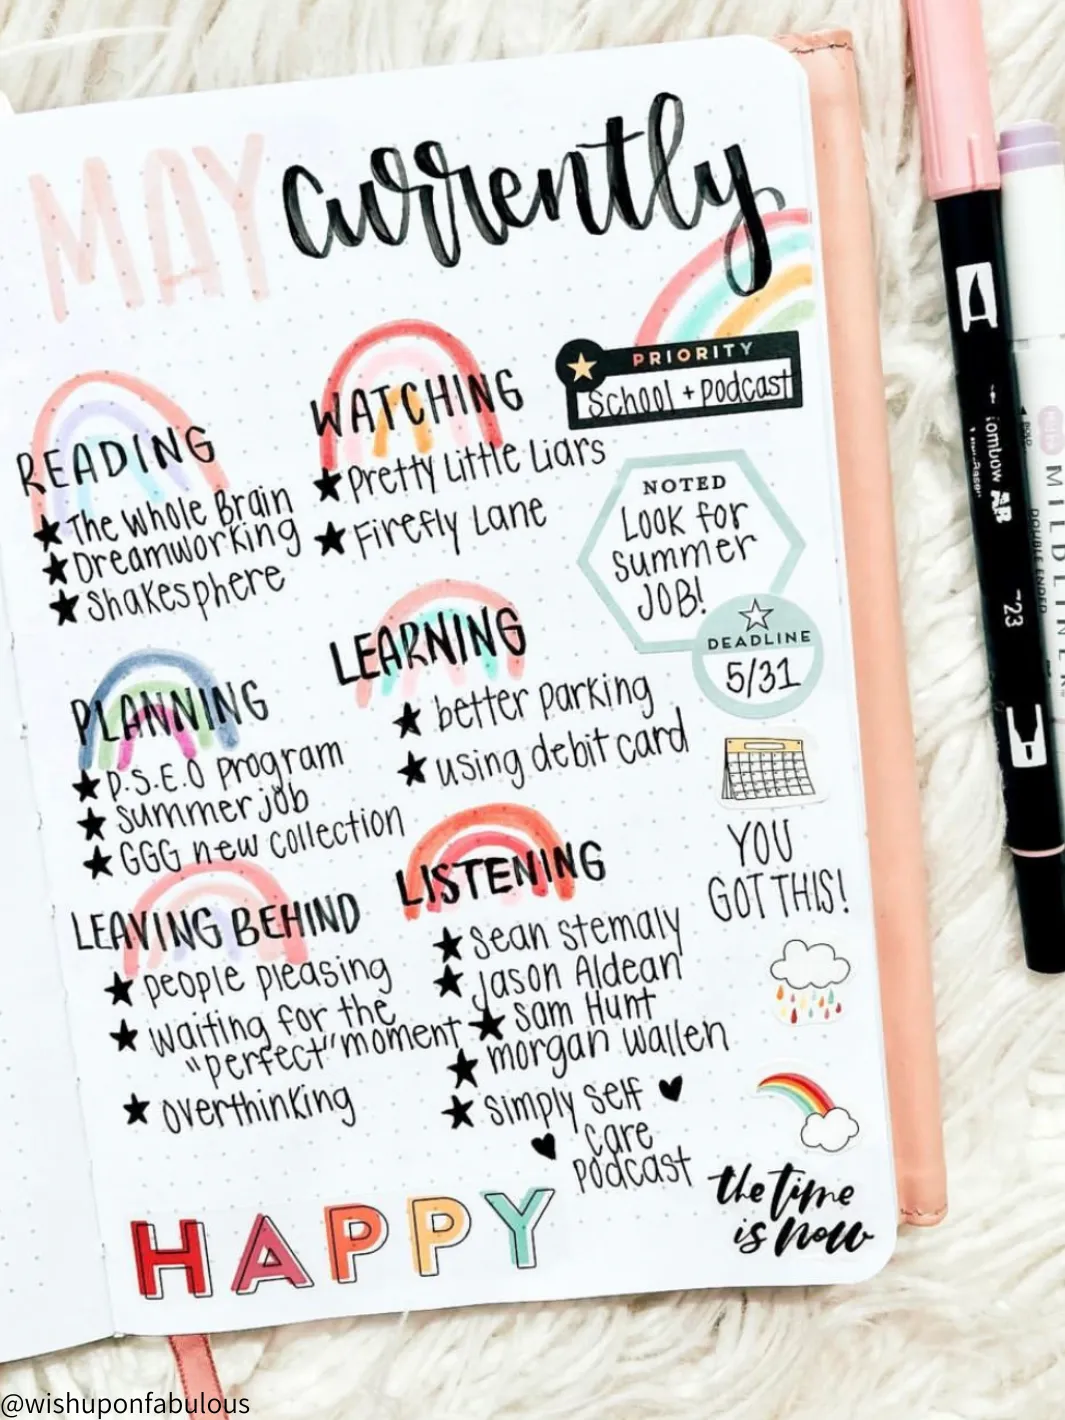 MAY Currently
READING
★ The Whole Brain
★ Dreamworking
★ Shakesphere
WATCHING
★ Pretty Little Liars
★ Firefly Lane
PRIORITY
School + Podcast
NOTED
Look for
summer
JOB!
DEADLINE
5/31
PLANNING
★ P.S.E.O program
★ summer job
★ GGG new collection
LEARNING
★ better parking
★ using debit card
LEAVING BEHIND
★ people pleasing
★ waiting for the
"perfect" moment
★ overthinking
LISTENING
★ Sean Stemaly
★ Jason Aldean
★ Sam Hunt
★ morgan wallen
★ Simply Self ♥
♥ Care
Podcast
YOU
GOT THIS!
the time
is now
HAPPY
Tombow AB
723
MILDLINER
DOUBLE ENDED
@wishuponfabulous